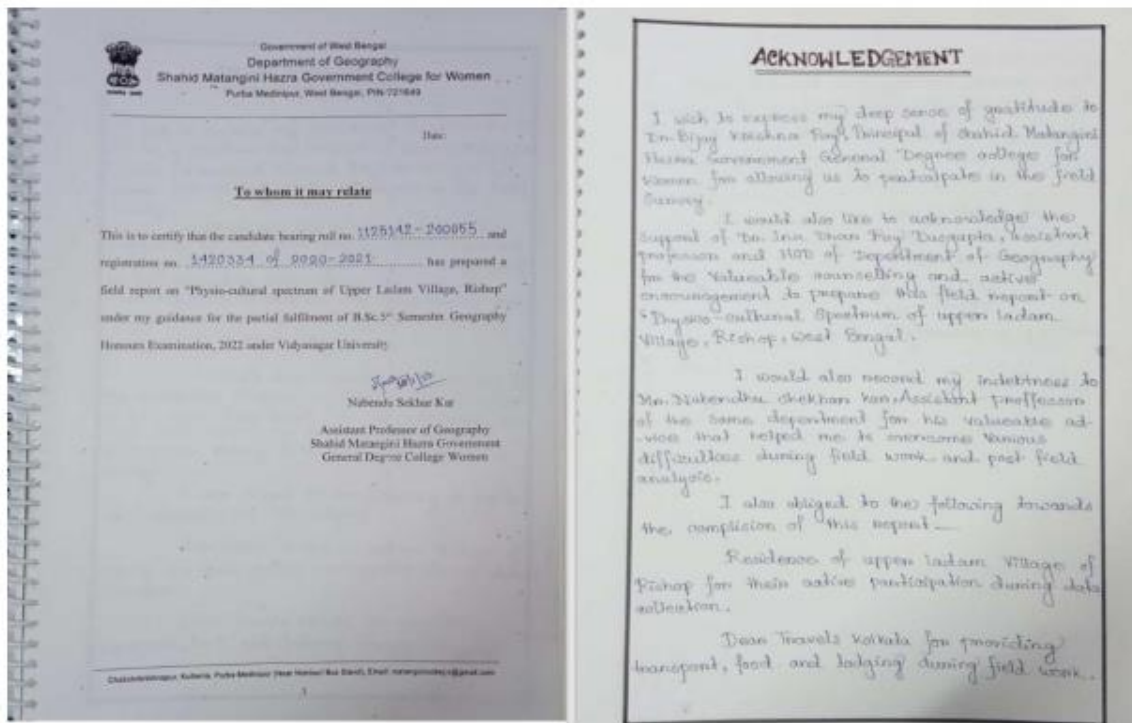 Government of West Bengal
Department of Geography
Shahid Matangini Hazra Government College for Women
Purba Medinipur, West Bengal, PIN-721649
Date:
To whom it may relate
This is to certify that the candidate bearing roll no. 1125142-200055 and
registration no. 1420334 of 2020-2021 has prepared a
field report on "Physio-cultural spectrum of Upper Ladam Village, Rishop"
under my guidance for the partial fulfilment of B.Sc. 5th Semester Geography
Honours Examination, 2022 under Vidyasagar University
Nabendu Sekhar Kar
Assistant Professor of Geography
Shahid Matangini Hazra Government
General Degree College Women
1
ACKNOWLEDGEMENT
I wish to express my deep sense of gratitude to
Dr. Bijay Krishna Roy, Principal of Shahid Matangini
Hazra Government General Degree college for
Women for allowing us to participate in the field
Survey.
I would also like to acknowledge the
support of Dr. Dhan Roy Dasgupta, Assistant
professor and HOD of Department of Geography
for the valueable counselling and active
encouragement to prepare this field report on
"Physio-cultural Spectrum of upper ladam
Village, Rishop, West Bengal.
I would also record my indebtness to
Mr. Nabendhu shekhar kar, Assistant proffessor
of the same department for his valueable ad-
-vice that helped me to overcome various
difficulties during field work and post field
analysis.
I also obliged to the following towards
the complision of this report—
Residence of upper ladam village of
Rishop for their active participation during data
collection.
Dean Travels Kolkata for providing
transport, food and lodging during field work.